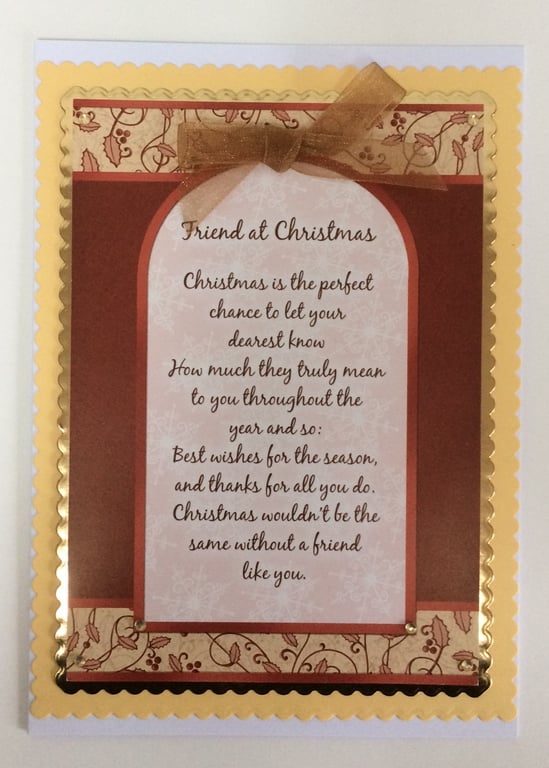 Friend at Christmas
Christmas is the perfect
chance to let your
dearest know
How much they truly mean
to you throughout the
year and so:
Best wishes for the season,
and thanks for all you do.
Christmas wouldn't be the
same without a friend
like you.